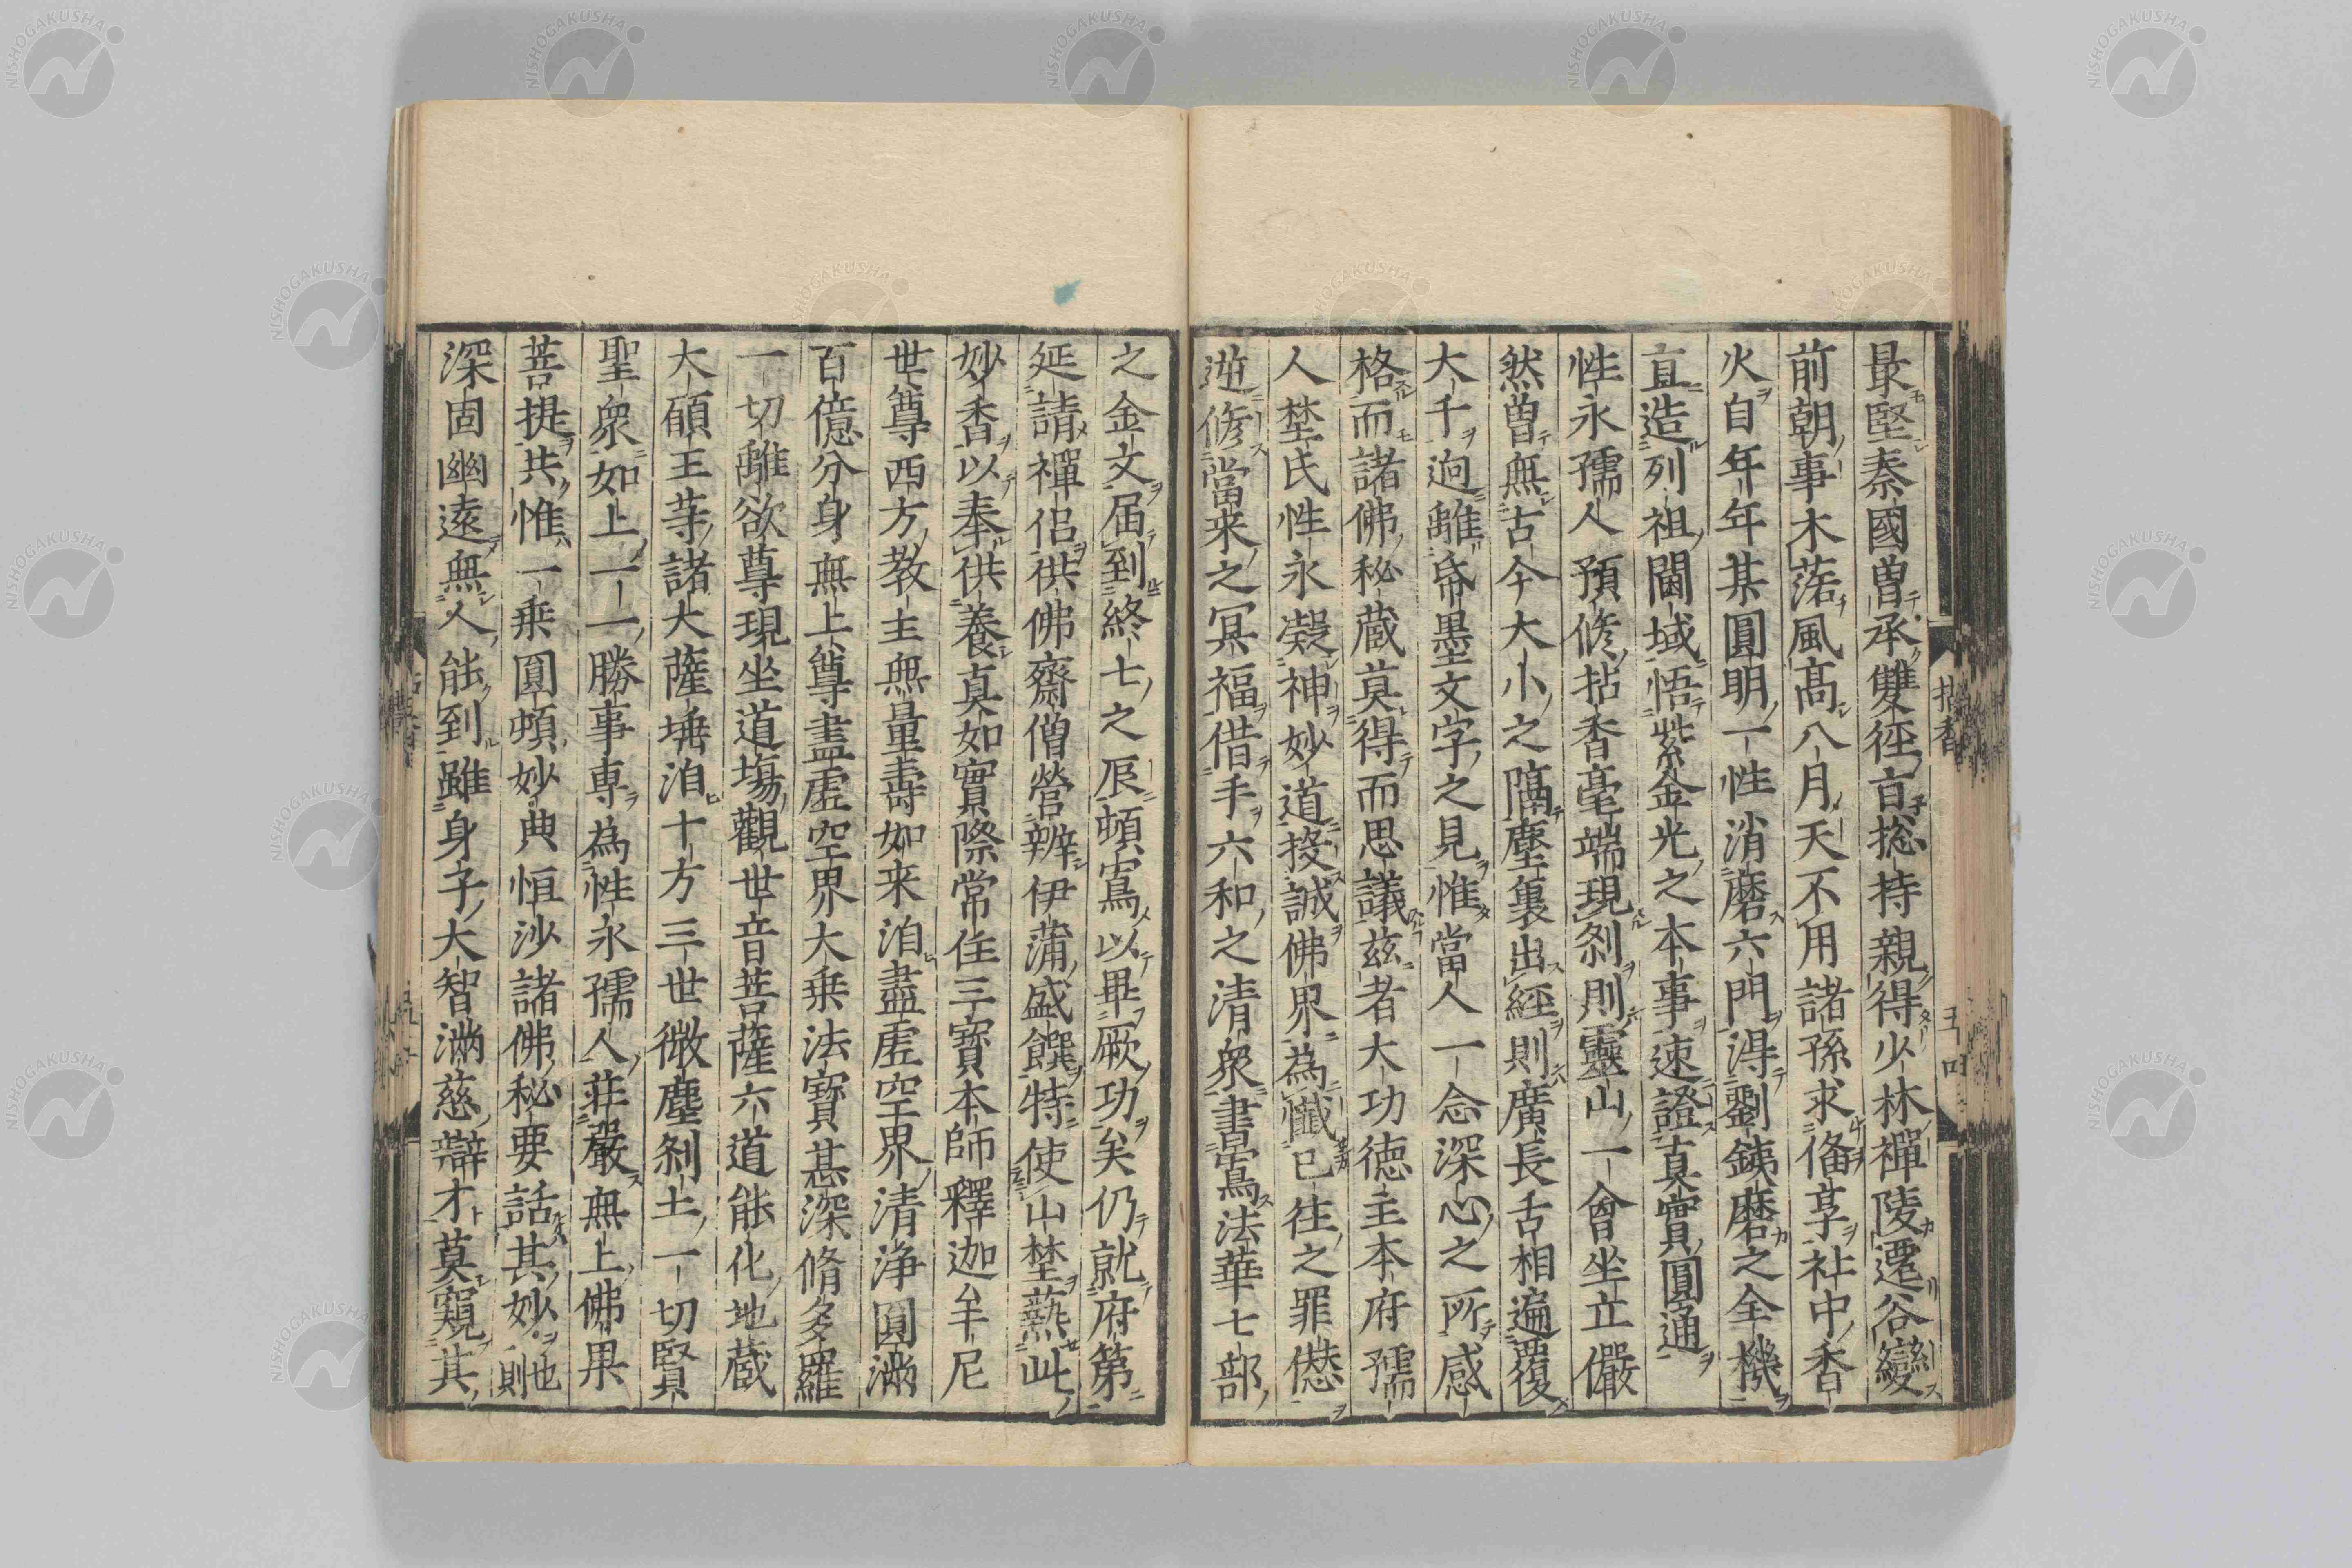 最堅秦國曽承雙徑百捴持親得少林禪陵遷谷變
前朝事木落風髙八月天不用諸孫求俻享社中香
火自年年某圓明一性消磨六門淂劉鉄磨之全機
直造列祖閫域悟紫金光之本事速證真實圓通
性永孺人預修拈香毫端現刹則靈山一會坐立儼
然曽無古今大小之隔塵裏出經則廣長舌相遍覆
大千逈離帋墨文字之見惟當人一念深心之所感
格而諸佛秘蔵莫得而思議兹者大功徳主本府孺
人埜氏性永凝神妙道投誠佛界為懺已往之罪愆
逆修當来之冥福借手六和之清衆書寫法華七部
之金文届到終七之辰頓寫以畢厥功矣仍就府第
延請禪侶供佛齋僧營辦伊蒲盛饌特使山埜爇此
妙香以奉供養真如實際常住三寳本師釋迦牟尼
世尊西方教主無量壽如来洎盡虚空界清浄圓滿
百億分身無上尊盡虚空界大乗法寳甚深脩多羅
一切離欲尊現坐道塲觀世音菩薩六道能化地蔵
大願王等諸大薩埵洎十方三世微塵刹土一切賢
聖衆如上一一勝事専為性永孺人莊嚴無上佛果
菩提共惟一乗圓頓妙典恒沙諸佛秘要話其妙則也
深固幽遠無人能到雖身子大智滿慈辯才莫窺其
拈香
NISHOGAKUSHA